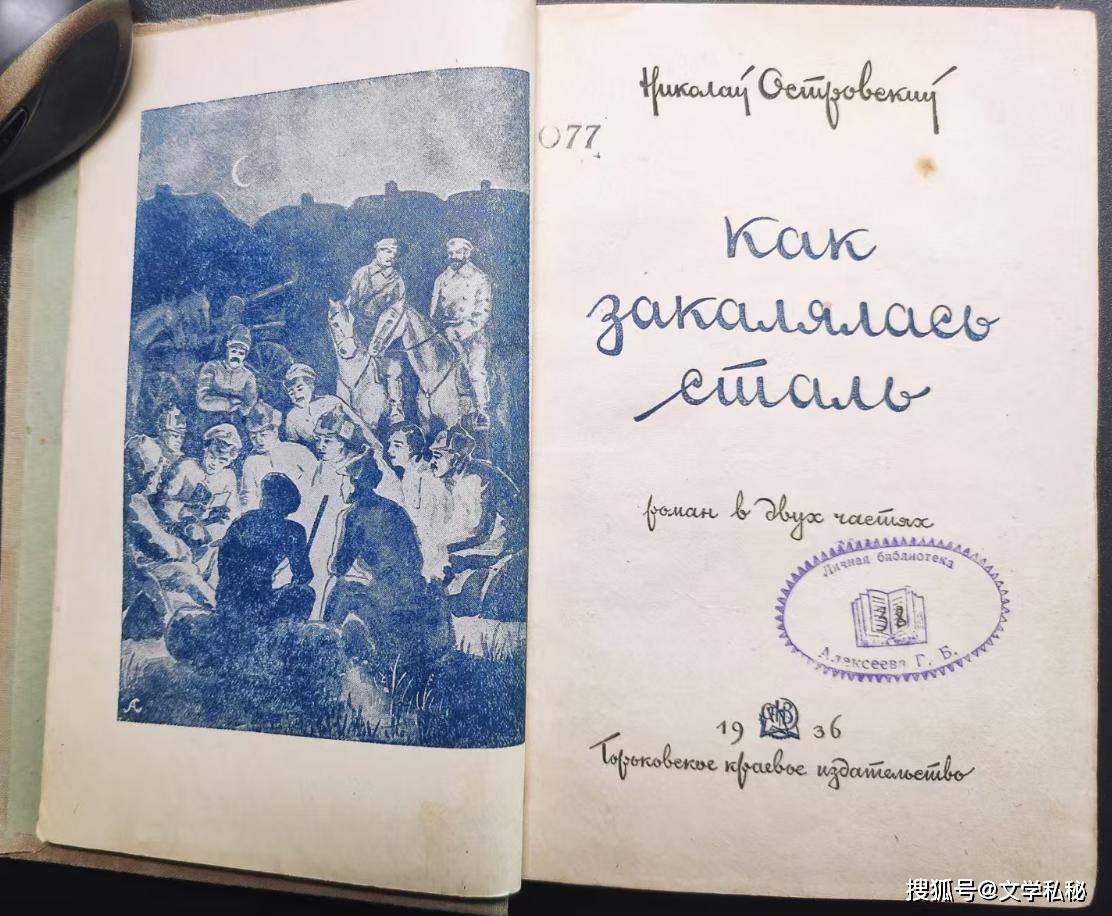 Николай Островский
077
как
закалялась
сталь
роман в двух частях
Личная библиотека
Алексеева Г. Б.
19 36
Горьковское краевое издательство
搜狐号@文学私秘